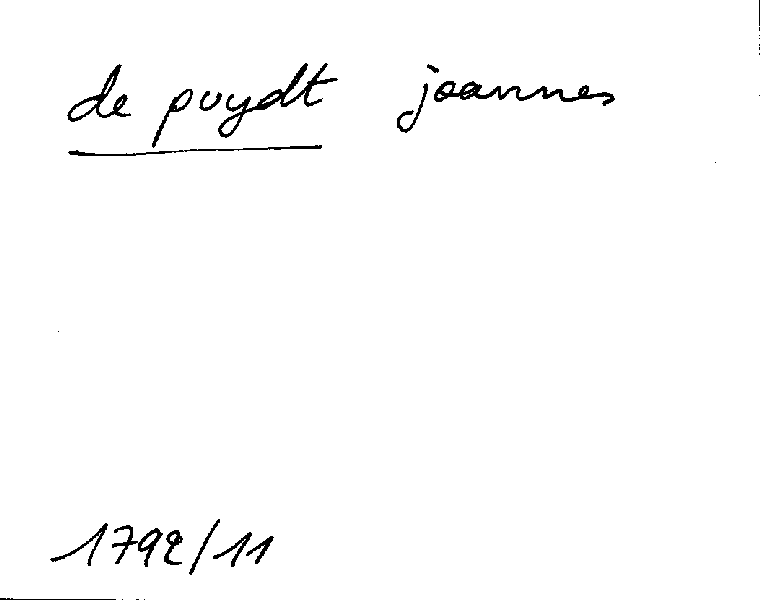 de puydt joannes
1792/11